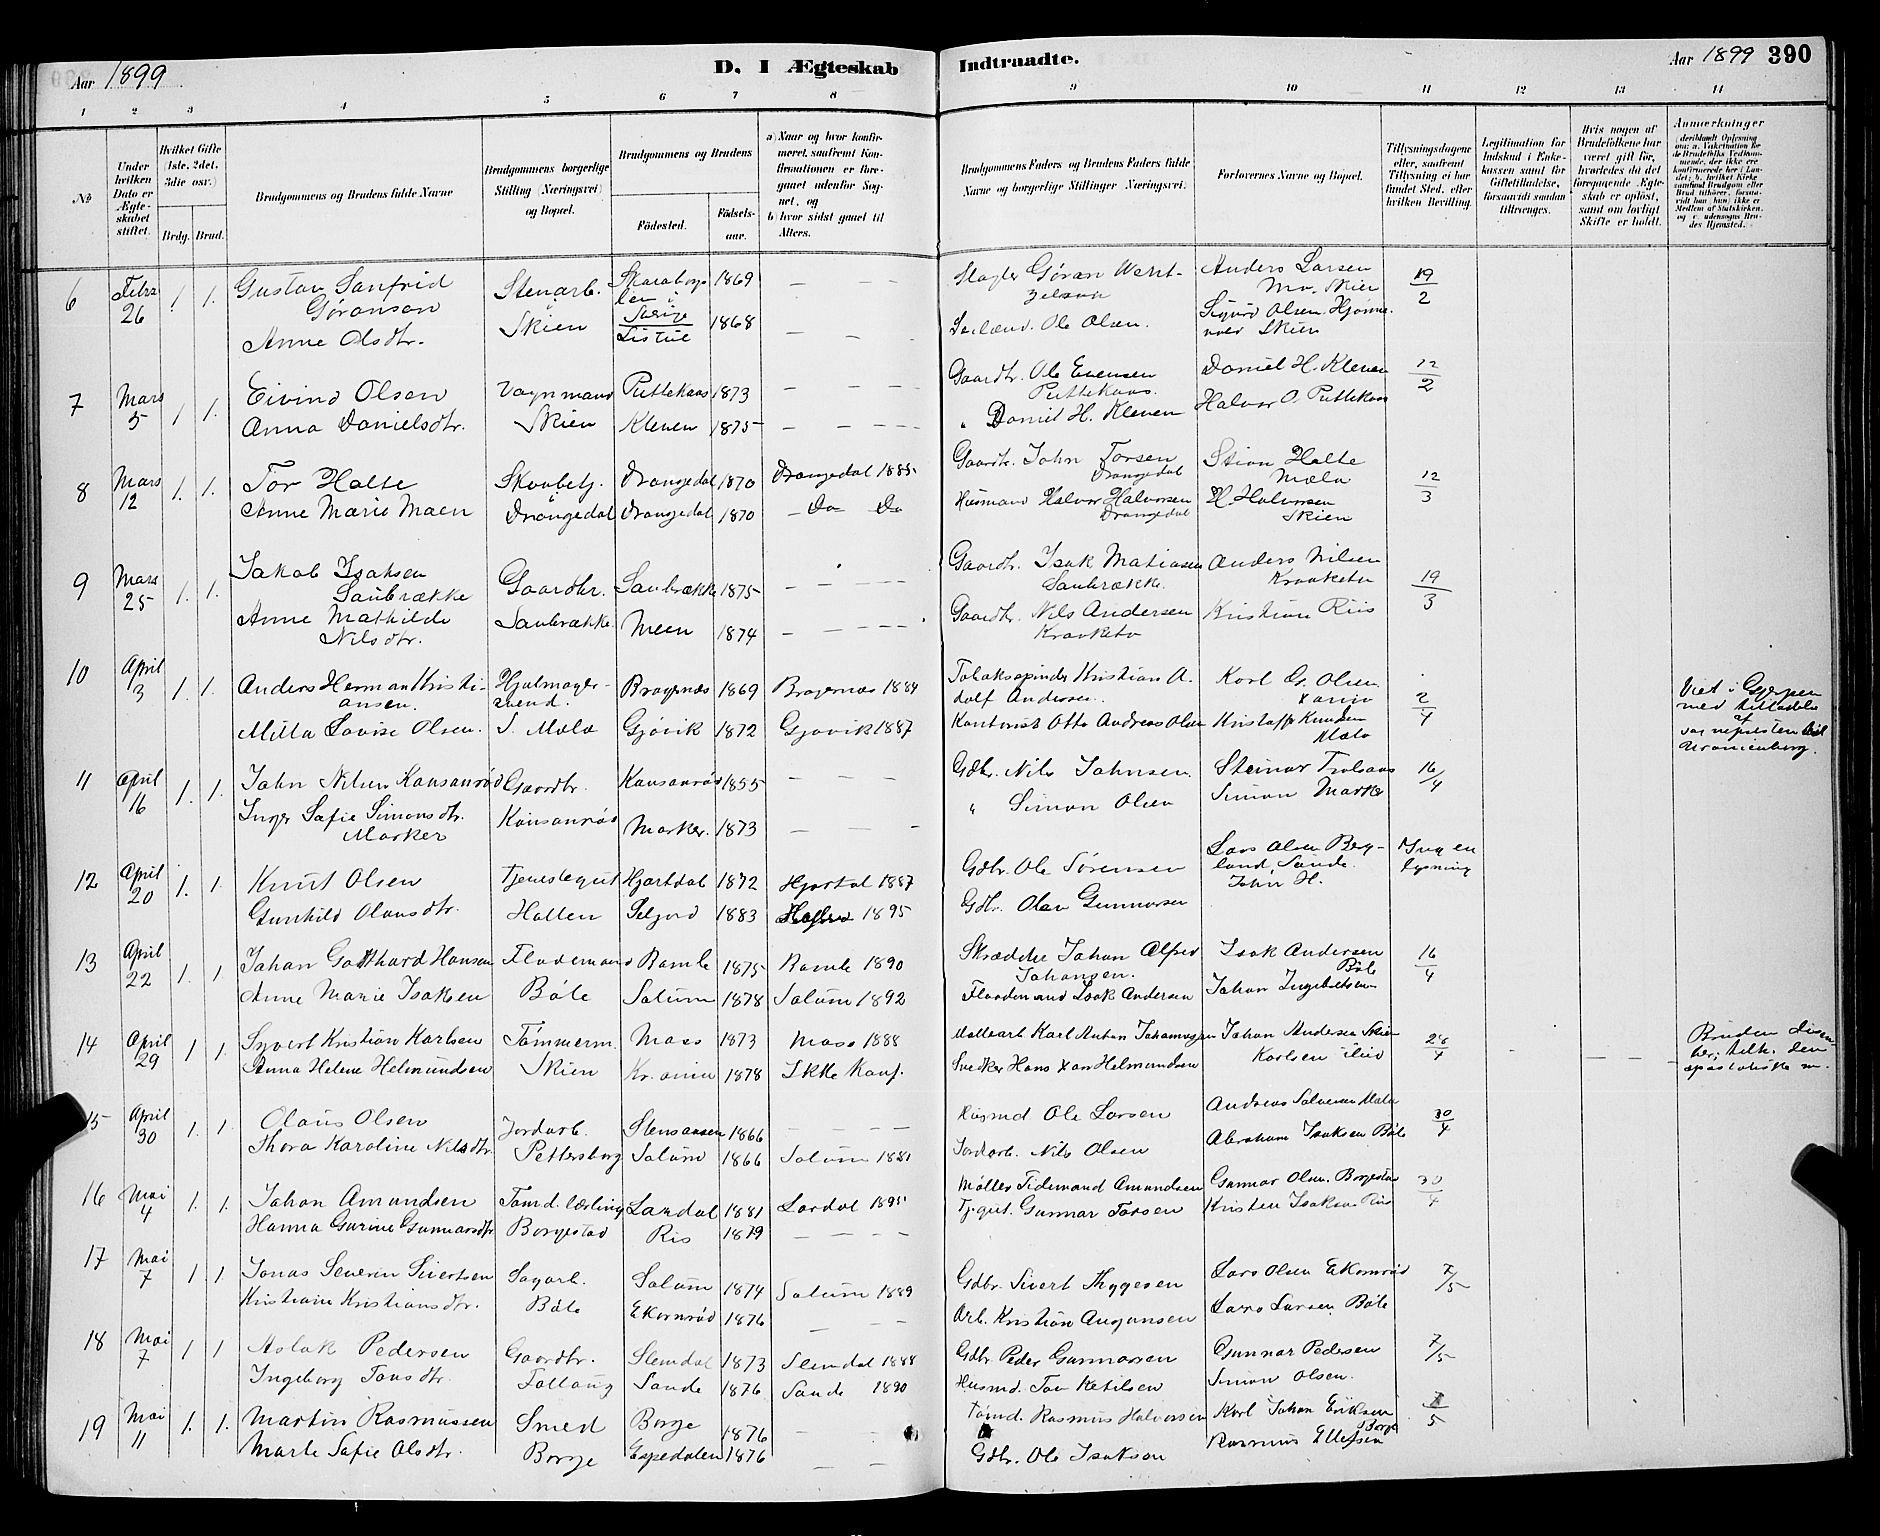 Aar 1899
D. I Ægteskab
Indtraadte.
Aar 1899 390
1 2 3 4 5 6 7 8 9 10 11 12 13 14
No
Under hvilken Dato er Ægteskabet stiftet.
Hvilket Gifte (1ste, 2det, 3die osv.)
Brdg. Brud.
Brudgommens og Brudens fulde Navne
Brudgommens borgerlige Stilling (Næringsvei) og Bopæl.
Brudgommens og Brudens
Fødested.
Fødselsaar.
a) Naar og hvor konfirmeret, saafremt Konfirmationen er foregaaet udenfor Sognet, og
b) hvor sidst gaaet til Alters.
Brudgommens Faders og Brudens Faders fulde Navne og borgerlige Stillinger (Næringsvei).
Forlovernes Navne og Bopæl.
Tillysningsdagene eller, saafremt Tillysning ei har fundet Sted, efter hvilken Bevilling.
Legitimation for Indskud i Enkekassen samt for Giftetilladelse, forsaavidt saadan tiltrænges.
Hvis nogen af Brudefolkene har været gift før, hvorledes da det foregaaende Ægteskab er opløst, samt om lovligt Skifte er holdt.
Anmærkninger
6 Febr 26 1. 1. Gustav Sanfrid Göranson Stenarb. i Skien Skaraborgs len i Sverige 1869 — — Slagter Göran Anders Larsen Mo, Skien 19/2
Anne Olsdtr. Listul 1868 — — Ole Olsen. Sigurd Olsen Skien
7 Mars 5 1. 1. Eivind Olsen Vognmand Skien Puttekaas 1873 — — — Gaardbr. Ole Evensen Puttekaas. Daniel H. Kleven 12/2
Anna Danielsdtr. Kleven 1875 — — — " Daniel H. Kleven Halvor O. Puttekaas
8 Mars 12 1. 1. Tor Holte Skovbetj. Drangedal Drangedal 1870 Drangedal 1885 Gaardbr. John Torsen Drangedal Stian Holte Mæla 12/3
Anne Marie Moen Drangedal 1870 — Do Do Husmand Halvor Halvorsen Drangedal H. Halvorsen Skien
9 Mars 25 1. 1. Jakob Isaksen Saubrække Gaardbr. Saubrække Saubrække 1875 — — — — Gaardbr. Isak Matiasen Saubrække. Anders Nilsen Kraaketo 19/3
Anne Mathilde Nilsdtr. Meen 1874 — — — — Gaardbr. Nils Andersen Kraaketo Kristian Riis
10 April 3 1. 1. Anders Herman Kristiansen. Hjulmagersvend. S. Mæla Bragernæs 1869 Bragernæs 1884 Tobakspinder Kristian Adolf Andersen. Karl G. Olsen 2/4 Viet i Gjerpen med tilladelse af sognepresten til Uranienborg.
Milla Lovise Olsen. Gjøvik 1872 Gjøvik 1887 Kontorist Otto Andreas Olsen Kristoffer Knudsen Mæla
11 April 16 1. 1. John Nilsen Kansanrød Gaardbr. Kansanrød Kansanrød 1855 — — — Gdbr. Nils Johnsen. Steinar 16/4
Inger Sofie Simonsdtr. Marker Marker. 1873 — — — " Simon Olsen Simon Marker
12 April 20 1. 1. Knut Olsen Tjenestegut Hatlen Hjartdal 1872 Hjartdal 1887 Gdbr. Ole Sørensen Lars Olsen Bergland, Sande. John H. Ingen lysning
Gunhild Olavsdtr. Seljord 1883 1895 Gdbr. Olav Gunnarsen
13 April 22 1. 1 Johan Gotthard Hansen Flodemand Bøle Bamle 1875 Bamle 1890 Skrædder Johan Alfred Johansen. Isak Andersen Bøle 16/4
Anne Marie Isaksen Solum 1878 Solum 1892 Flaademand Isak Andersen Johan Ingebretsen
14 April 29 1 1. Syvert Kristian Karlsen Tømmerm. Skien Moss 1873 Moss 1888 Karl Anton Johannesen Johan Andersen Skien 28/4 — — — — Bruden tilh. den apostoliske m.
Anna Helene Helmundsen Kr.ania 1878 Ikke konf. Snedker Hans Helmundsen Karlsen
15 April 30 1. 1. Olaus Olsen Jordarb. Pettersborg Stensaasen 1866 — — — — Husmd Ole Larsen Andreas Salvesen Mæla 30/4
Thora Karoline Nilsdtr. Solum 1866 Solum 1881 Jordarb. Nils Olsen Abraham Isaksen Bøle
16 Mai 4 1. 1. Johan Amundsen Tømd. lærling Borgestad Lardal 1881 Lardal 1895 Møller Tidemand Amundsen Gunnar Olsen. Borgestad 30/4
Hanna Gurine Gunnarsdtr Ris 1879 — — — — Tj.gut. Gunnar Torsen Kristen Isaksen Riis
17 Mai 7 1 1. Jonas Severin Sivertsen Sagarb. Bøle Solum 1874 Solum 1889 Gdbr. Sivert Thygesen Lars Olsen Ekornrød 7/5
Kristiane Kristiansdtr. Ekornrød 1876 — — — Arb. Kristian Lars Larsen Bøle
18 Mai 7 1 1 Aslak Pedersen Gaardbr. Follaug Slemdal 1873 Slemdal 1888 Gdbr. Peder Gunnarsen Gunnar Pedersen 7/5
Ingeborg Torsdtr. Sande 1876 Sande 1890 Husmd. Tor Ketilsen Simon Olsen.
19 Mai 11 1. 1. Martin Rasmussen Smed Borge Borge 1876 — — Tømd. Rasmus Halvorsen Karl Johan Eriksen Borge 7/5
Marte Sofie Olsdtr. Espedalen 1876 — — Gdbr. Ole Isakson Rasmus Ellefsen